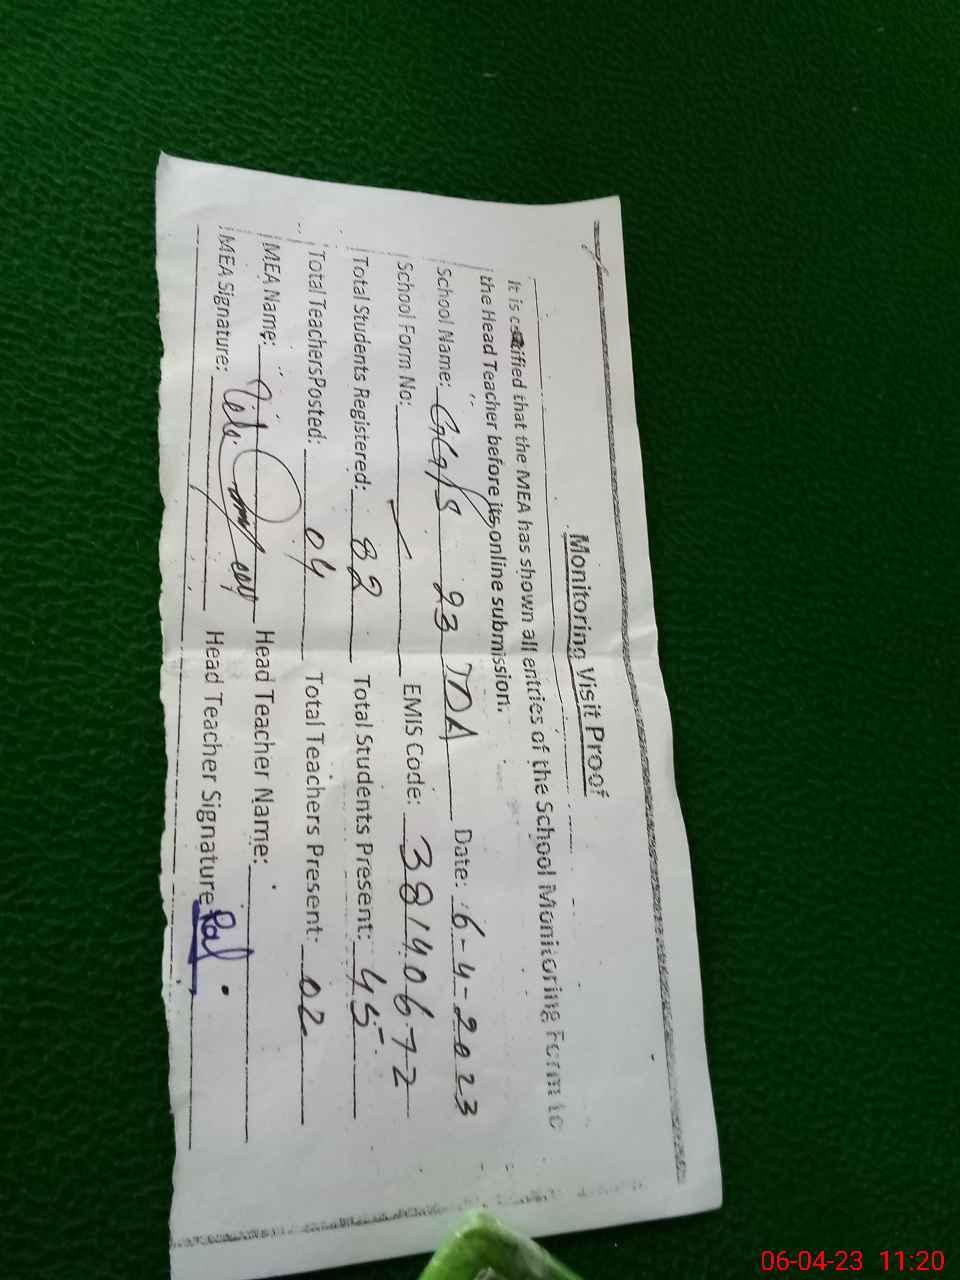 Monitoring Visit Proof
It is certified that the MEA has shown all entries of the School Monitoring Form to
the Head Teacher before its online submission.
School Name: GGPS 23 TDA Date: 6-4-2023
School Form No: EMIS Code: 38140672
Total Students Registered: 82 Total Students Present: 45
Total TeachersPosted: 04 Total Teachers Present: 02
MEA Name: Head Teacher Name:
MEA Signature: Head Teacher Signature
06-04-23 11:20